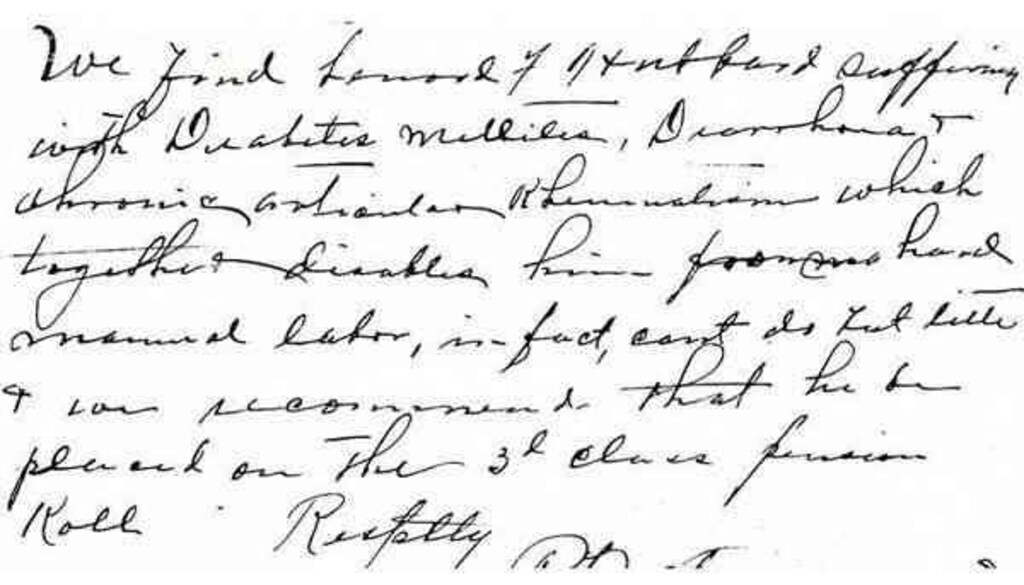 We find Leonard F Hubbard suffering
with Diabetes Mellites, Diarrhoea &
Chronic articular Rheumatism which
together disables him from hard
manual labor, in fact, can't do but little
& we recommend that he be
placed on the 3d class pension
Roll Respttly